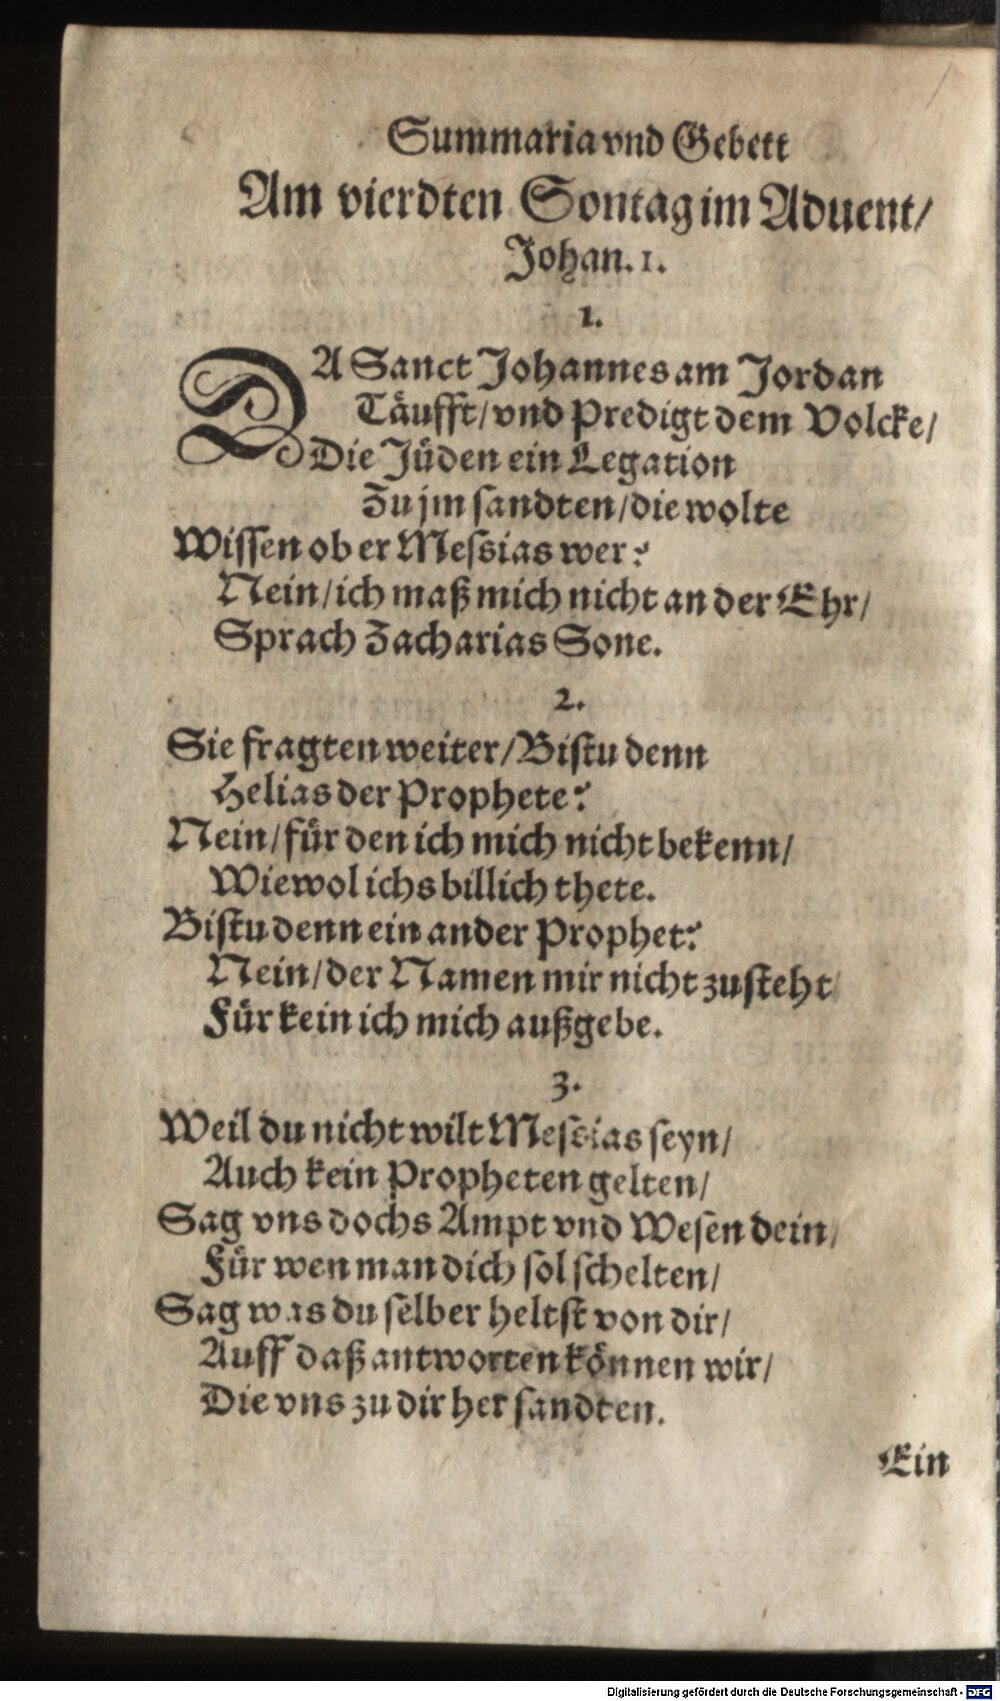 Summaria vnd Gebett
Am vierdten Sontag im Aduent/
Johan. 1.
1.
DA Sanct Johannes am Jordan
Täufft/ vnd Predigt dem Volcke/
Die Jüden ein Legation
Zu jm ſandten/ die wolte
Wiſſen ob er Meſsias wer?
Nein/ ich maß mich nicht an der Ehr/
Sprach Zacharias Sone.
2.
Sie fragten weiter/ Biſtu denn
Helias der Prophete?
Nein/ für den ich mich nicht bekenn/
Wiewol ichs billich thete.
Biſtu denn ein ander Prophet?
Nein/ der Namen mir nicht zuſteht/
Für kein ich mich außgebe.
3.
Weil du nicht wilt Meſsias ſeyn/
Auch kein Propheten gelten/
Sag vns dochs Ampt vnd Weſen dein/
Für wen man dich ſol ſchelten/
Sag was du ſelber heltſt von dir/
Auff daß antworten können wir/
Die vns zu dir her ſandten.
Ein
Digitalisierung gefördert durch die Deutsche Forschungsgemeinschaft - DFG